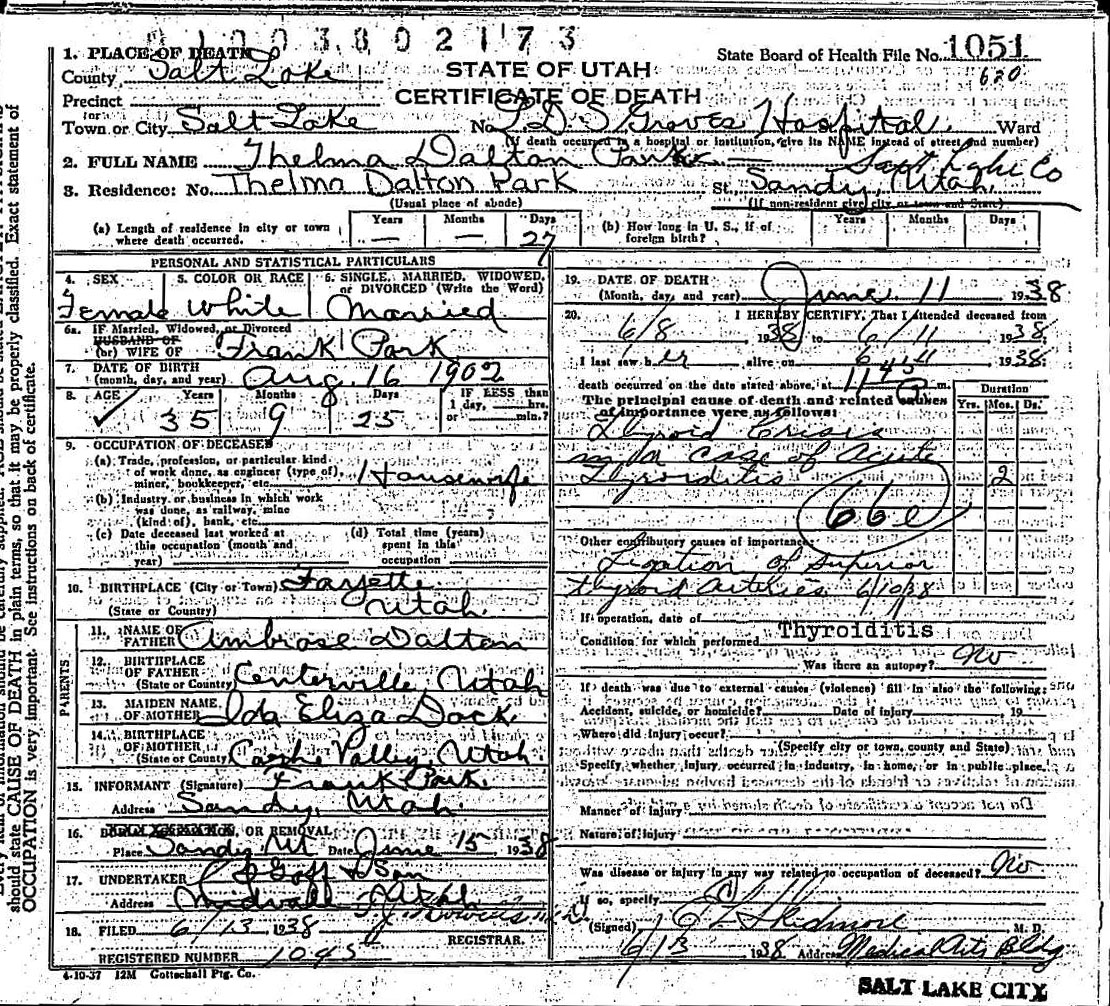 01003802173
1. PLACE OF DEATH
County Salt Lake
State Board of Health File No. 1051
620
STATE OF UTAH
CERTIFICATE OF DEATH
Precinct
(or)
Town or City Salt Lake No. L D S Groves Hospital Ward
(If death occurred in a hospital or institution, give its NAME instead of street and number)
2. FULL NAME Thelma Dalton Park
3. Residence: No. Thelma Dalton Park St., Sandy, Utah
(Usual place of abode) (If non-resident give city or town and State)
(a) Length of residence in city or town where death occurred. Years — Months — Days 27
(b) How long in U. S., if of foreign birth? Years Months Days
PERSONAL AND STATISTICAL PARTICULARS
4. SEX 5. COLOR OR RACE 6. SINGLE, MARRIED, WIDOWED, or DIVORCED (Write the Word)
Female White Married
6a. IF Married, Widowed, or Divorced
HUSBAND OF
(or) WIFE OF Frank Park
7. DATE OF BIRTH
(month, day, and year) Aug. 16 1902
8. AGE Years 35 Months 9 Days 25 IF LESS than 1 day, hrs. or min.?
9. OCCUPATION OF DECEASED
(a) Trade, profession, or particular kind of work done, as engineer (type of), miner, bookkeeper, etc. Housewife
(b) Industry or business in which work was done, as railway, mine (kind of), bank, etc.
(c) Date deceased last worked at this occupation (month and year)
(d) Total time (years) spent in this occupation
10. BIRTHPLACE (City or Town) Fayette
(State or Country) Utah
PARENTS
11. NAME OF FATHER Ambrose Dalton
12. BIRTHPLACE OF FATHER
(State or Country) Centerville, Utah
13. MAIDEN NAME OF MOTHER Ida Eliza Dack
14. BIRTHPLACE OF MOTHER
(State or Country) Cache Valley, Utah
15. INFORMANT (Signature) Frank Park
Address Sandy, Utah
16. BURIAL, CREMATION, OR REMOVAL
Place Sandy Ut Date June 15, 1938
17. UNDERTAKER Goff & Son
Address Midvale Utah
18. FILED 6/13 1938
REGISTRAR.
REGISTERED NUMBER 1045
4-10-37 12M Gottschall Ptg. Co.
19. DATE OF DEATH
(Month, day, and year) June 11 1938
20. I HEREBY CERTIFY, That I attended deceased from
6/8 1938 to 6/11 1938
I last saw her alive on 6 11 1938
death occurred on the date stated above, at 11 45 m.
The principal cause of death and related causes of importance were as follows:
Duration
Yrs. Mos. Ds.
Thyroid Crisis
in a case of Acute
Thyroiditis 2
66e
Other contributory causes of importance:
Ligation of Superior
thyroid arteries 6/10/38
If operation, date of
Condition for which performed Thyroiditis
Was there an autopsy? No
If death was due to external causes (violence) fill in also the following:
Accident, suicide, or homicide? Date of injury 19
Where did injury occur?
(Specify city or town, county and State)
Specify whether injury occurred in industry, in home, or in public place.
Manner of injury
Nature of injury
Was disease or injury in any way related to occupation of deceased? No
If so, specify
(Signed) Skidmore M. D.
6/13 1938 Address Medical Arts Bldg
SALT LAKE CITY
should state CAUSE OF DEATH in plain terms, so that it may be properly classified. Exact statement of
OCCUPATION is very important. See instructions on back of certificate.